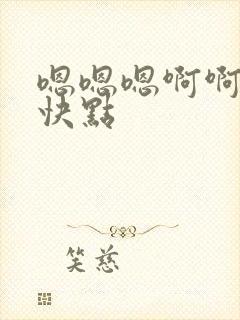 嗯嗯嗯啊啊
快點
笑慈